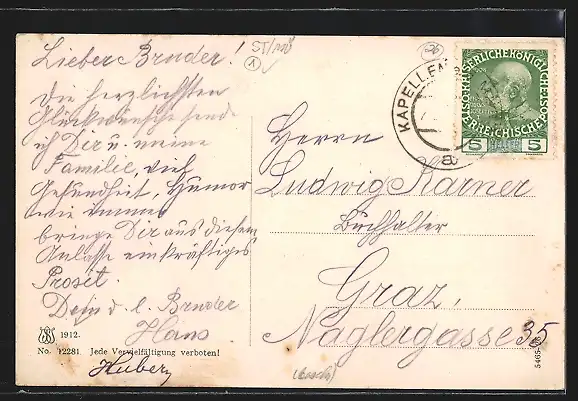 Lieber Bruder!
Die herzlichsten
Glückwünsche sende
ich Dir u. meine
Familie, viel
Gesundheit, Humor
wie immer
bringe Dir aus diesem
Anlasse ein kräftiges
Prosit.
Dein d. l. Bruder
Hans
1912.
No. 12281. Jede Vervielfältigung verboten!
Huber
ST/100
1
26
KAPELLEN
a
KAISERLICHEKÖNIGLICHE
ÖSTERREICHISCHE POST
5 HELLER 5
Herrn
Ludwig Karner
Buchhalter
Graz,
Naglergasse 35
5465